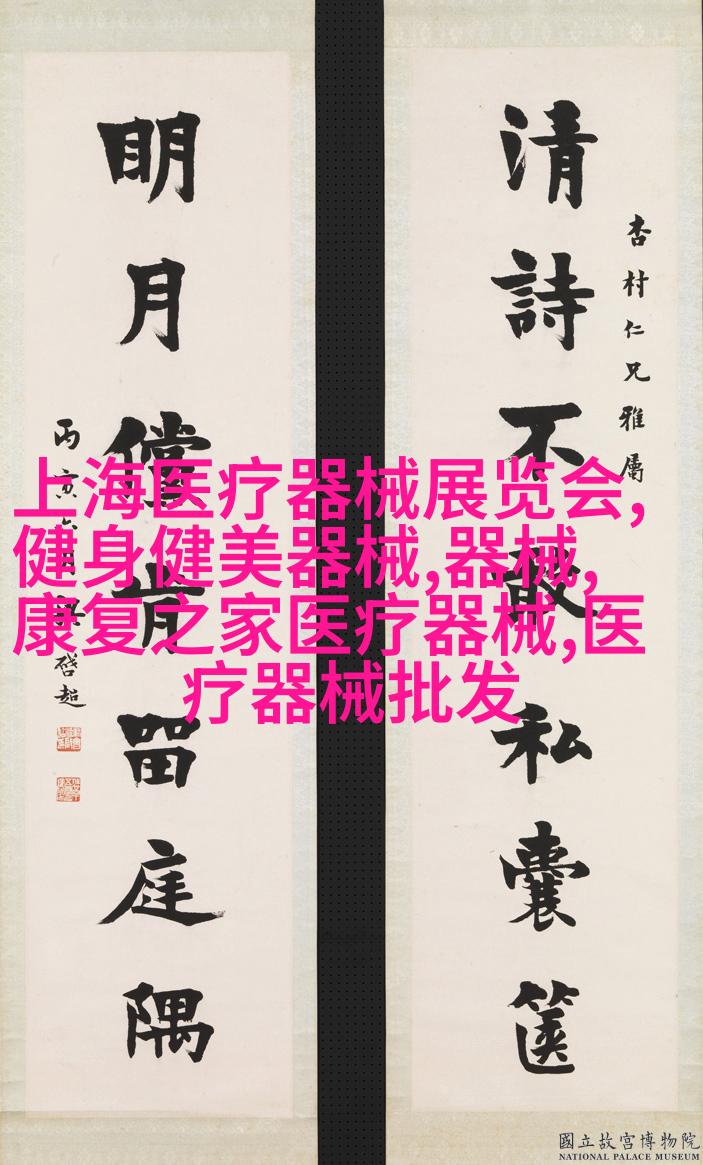 杏村仁兄雅屬
清詩不敢私囊篋
眀月儻肯留庭隅
丙寅六月梁啓超
上海医疗器械展览会,
健身健美器械,器械,
康复之家医疗器械,医
疗器械批发
國立故宮博物院
NATIONAL PALACE MUSEUM